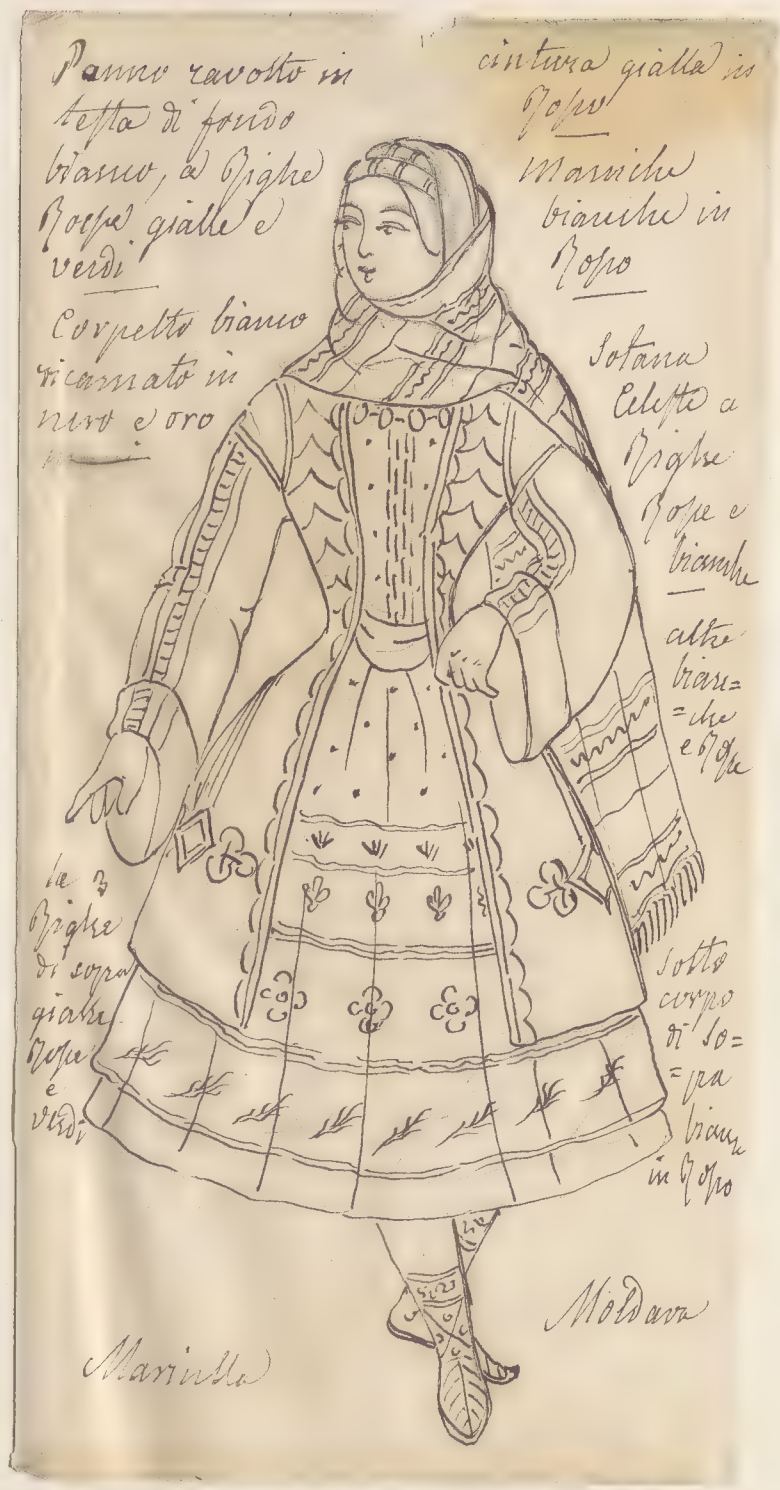 Panno ravolto in
testa di fondo
bianco, a Righe
Rosse gialle e
verdi
Corpetto bianco
ricamato in
nero e oro
cintura gialla in
Roso
maniche
bianche in
Roso
Sotana
Celeste a
Righe
Rose e
bianche
altre
bian=
=che
e Rose
le 3
Righe
di sopra
gialle
Rose
e
verdi
sotto
corpo
di so=
=pra
bianc
in Roso
Moldava
Marinella